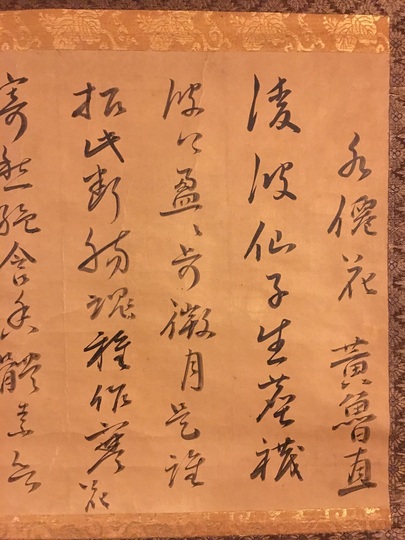 水僊花 黃魯直
淩波仙子生塵襪
波上盈〻步微月是誰
招此斷腸魂種作寒花
寄愁絕含香體素欲